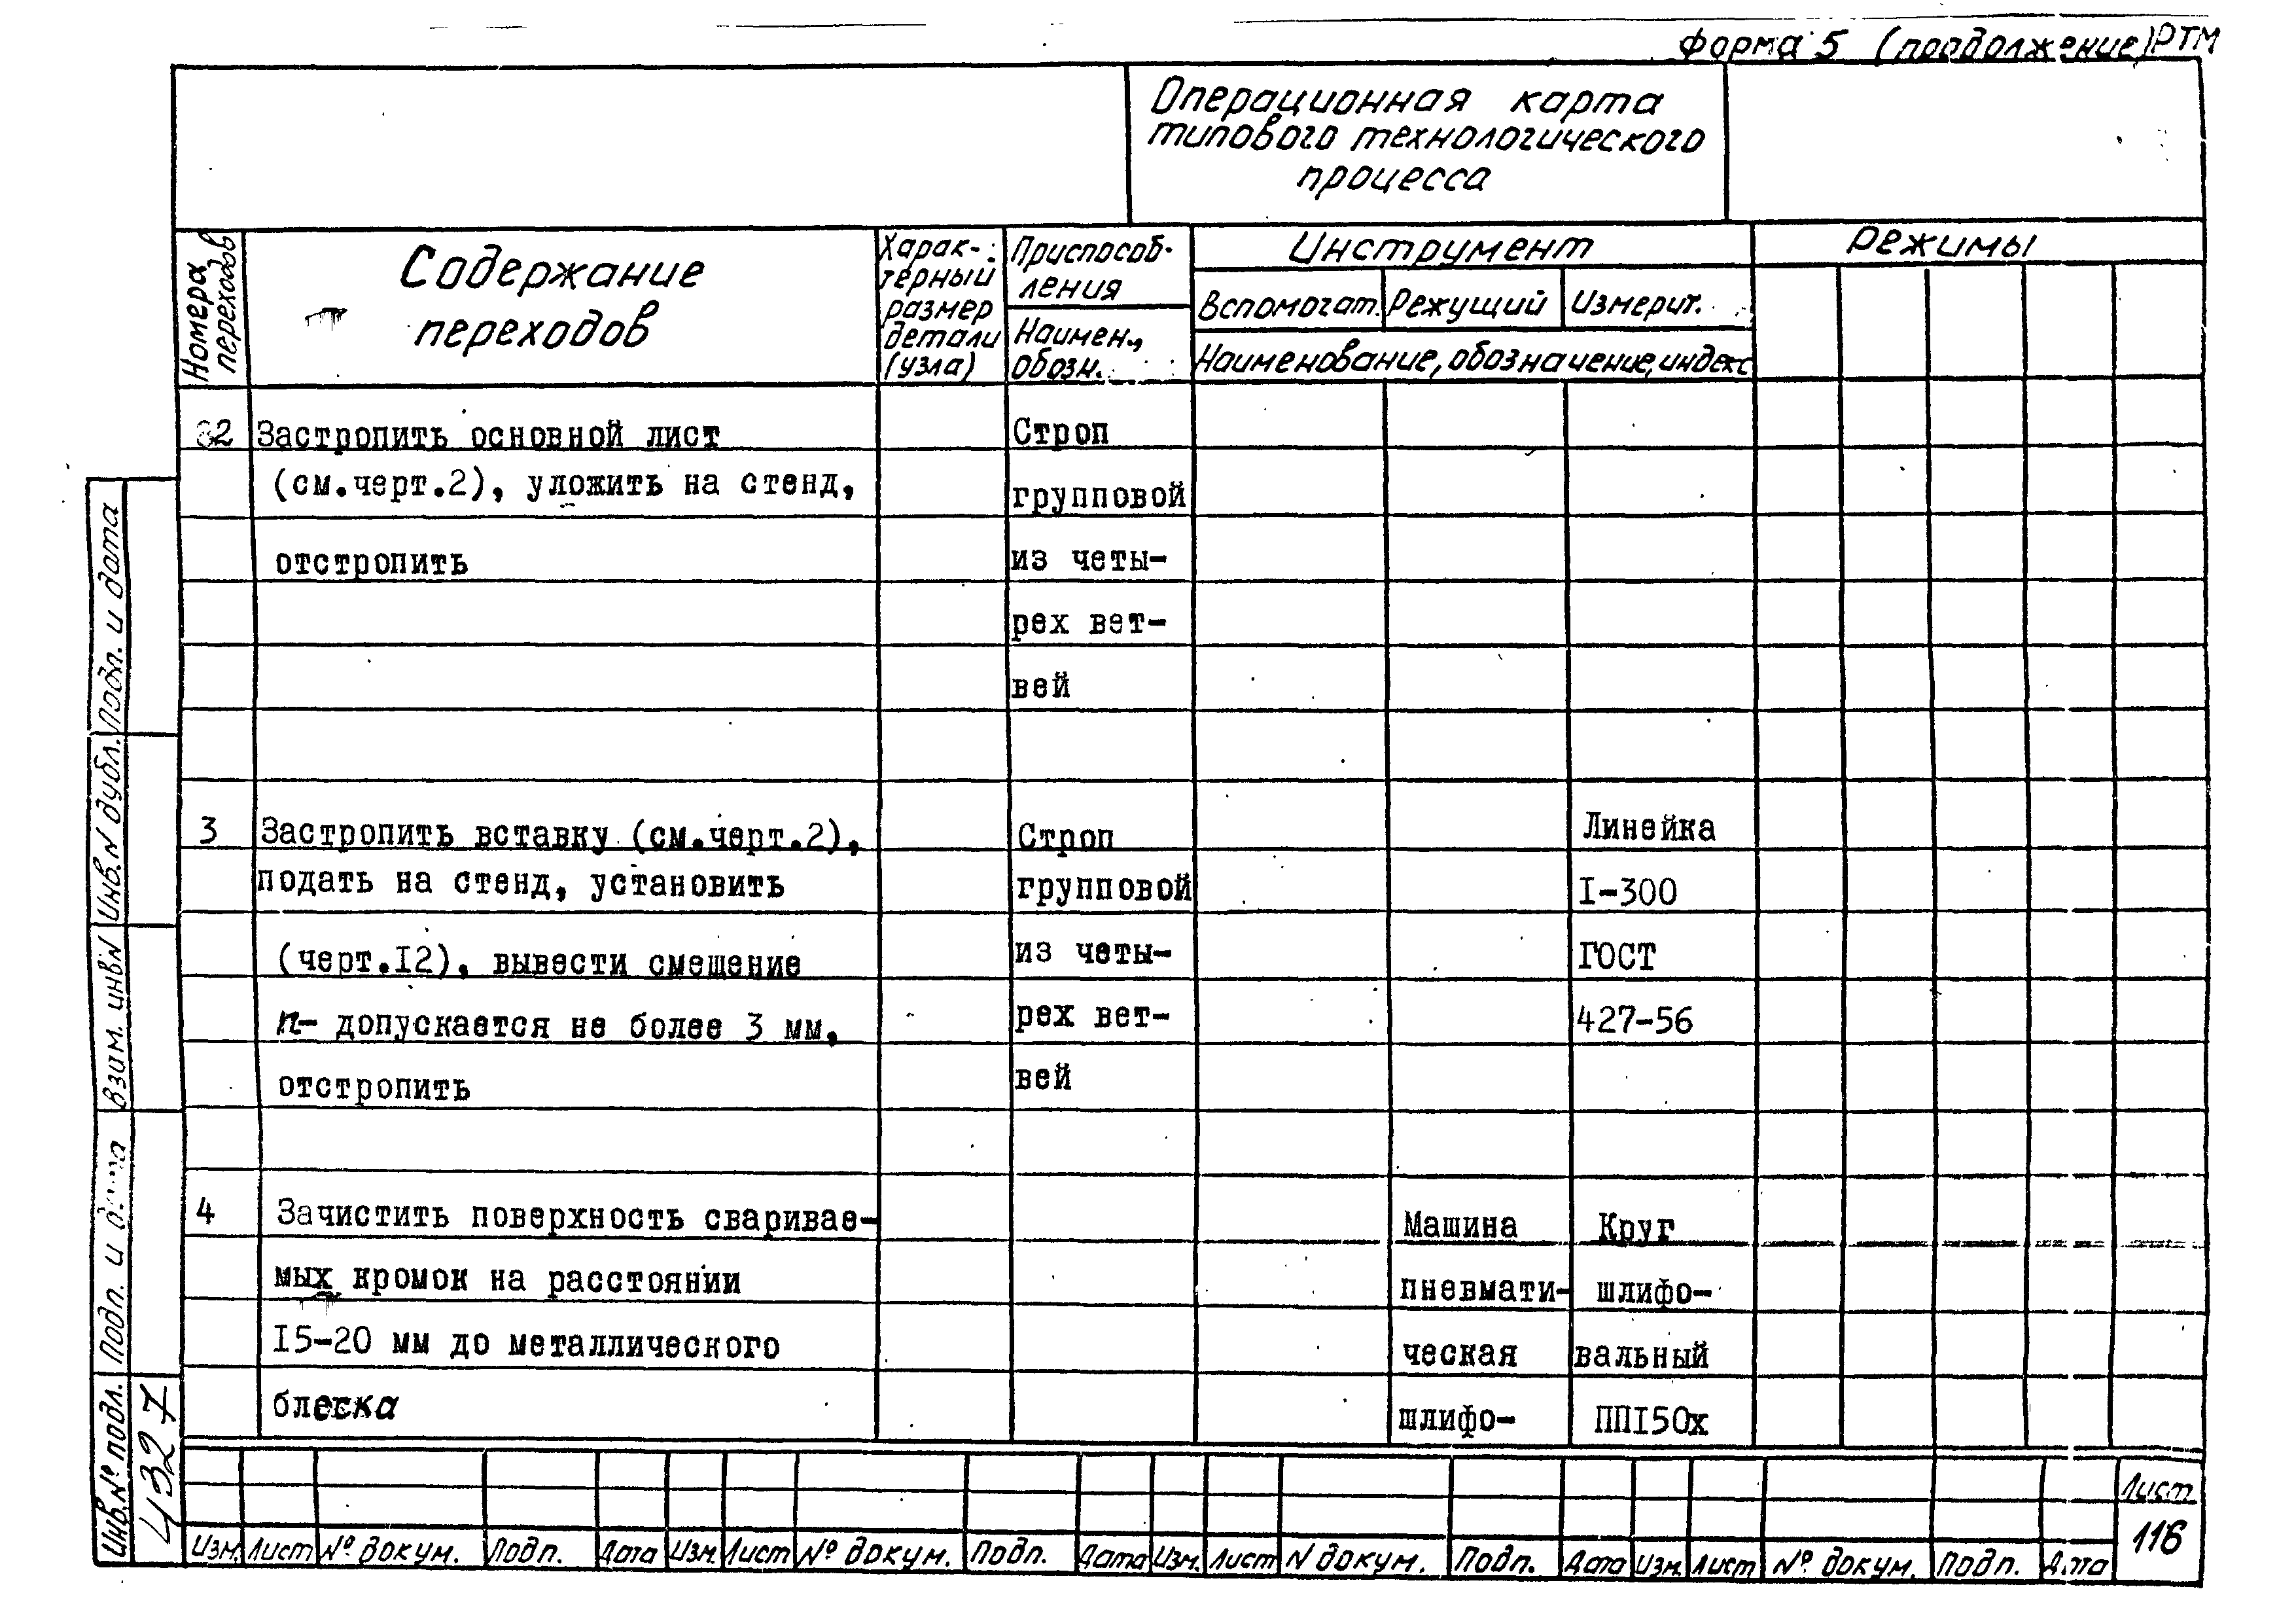 форма 5 (продолжение) РТМ
Операционная карта
типового технологического
процесса
Номера
переходов
Содержание
переходов
Харак-
терный
размер
детали
(узла)
Приспособ-
ления
Наимен.,
обозн.
Инструмент
Вспомогат. Режущий Измерит.
Наименование, обозначение, индекс
Режимы
2 Застропить основной лист
(см.черт.2), уложить на стенд,
отстропить
Строп
групповой
из четы-
рех вет-
вей
3 Застропить вставку (см.черт.2),
подать на стенд, установить
(черт.I2), вывести смещение
п- допускается не более 3 мм,
отстропить
Строп
групповой
из четы-
рех вет-
вей
Линейка
I-300
ГОСТ
427-56
4 Зачистить поверхность сваривае-
мых кромок на расстоянии
I5-20 мм до металлического
блеска
Машина
пневмати-
ческая
шлифо-
Круг
шлифо-
вальный
ППI50х
Подп. и дата
Инв.N дубл.
Взам. инвN
Подп. и дата
Инв.№ подл.
4327
Изм. Лист № докум. Подп. Дата Изм. Лист № докум. Подп. Дата Изм. Лист N докум. Подп. Дата Изм. Лист № докум. Подп. Дата
Лист
116